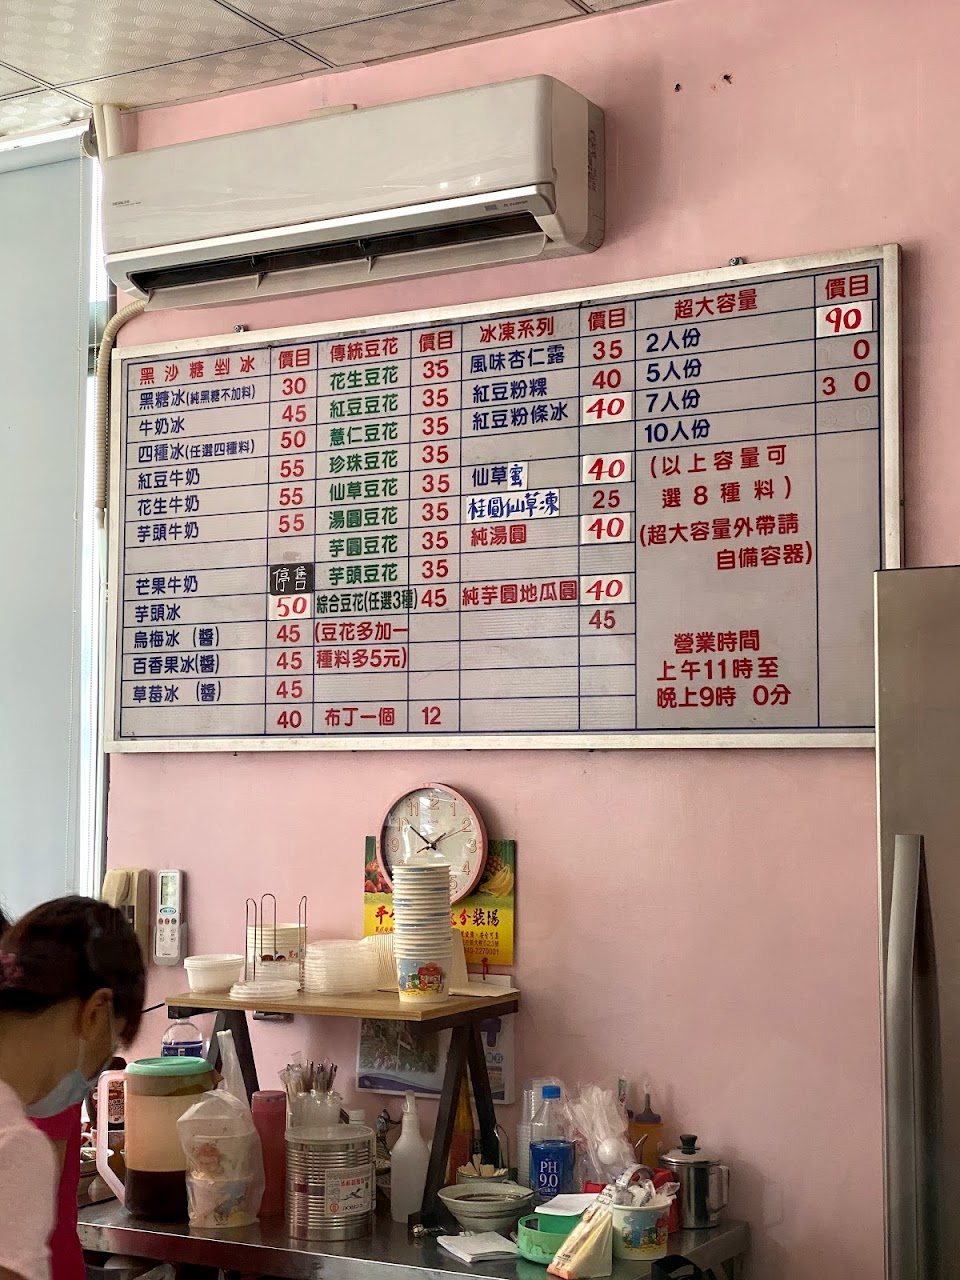 黑沙糖剉冰 價目
黑糖冰(純黑糖不加料) 30
牛奶冰 45
四種冰(任選四種料) 50
紅豆牛奶 55
花生牛奶 55
芋頭牛奶 55
芒果牛奶 停售
芋頭冰 50
烏梅冰(醬) 45
百香果冰(醬) 45
草莓冰(醬) 45
40
傳統豆花 價目
花生豆花 35
紅豆豆花 35
薏仁豆花 35
珍珠豆花 35
仙草豆花 35
湯圓豆花 35
芋圓豆花 35
芋頭豆花 35
綜合豆花(任選3種) 45
(豆花多加一
種料多5元)
布丁一個 12
冰凍系列 價目
風味杏仁露 35
紅豆粉粿 40
紅豆粉條冰 40
仙草蜜 40
桂圓仙草凍 25
純湯圓 40
純芋圓地瓜圓 40
45
超大容量 價目
2人份 90
5人份 0
7人份 30
10人份
(以上容量可
選8種料)
(超大容量外帶請
自備容器)
營業時間
上午11時至
晚上9時0分
11 12 1
2
9 3
4
5
分裝場
PH
9.0